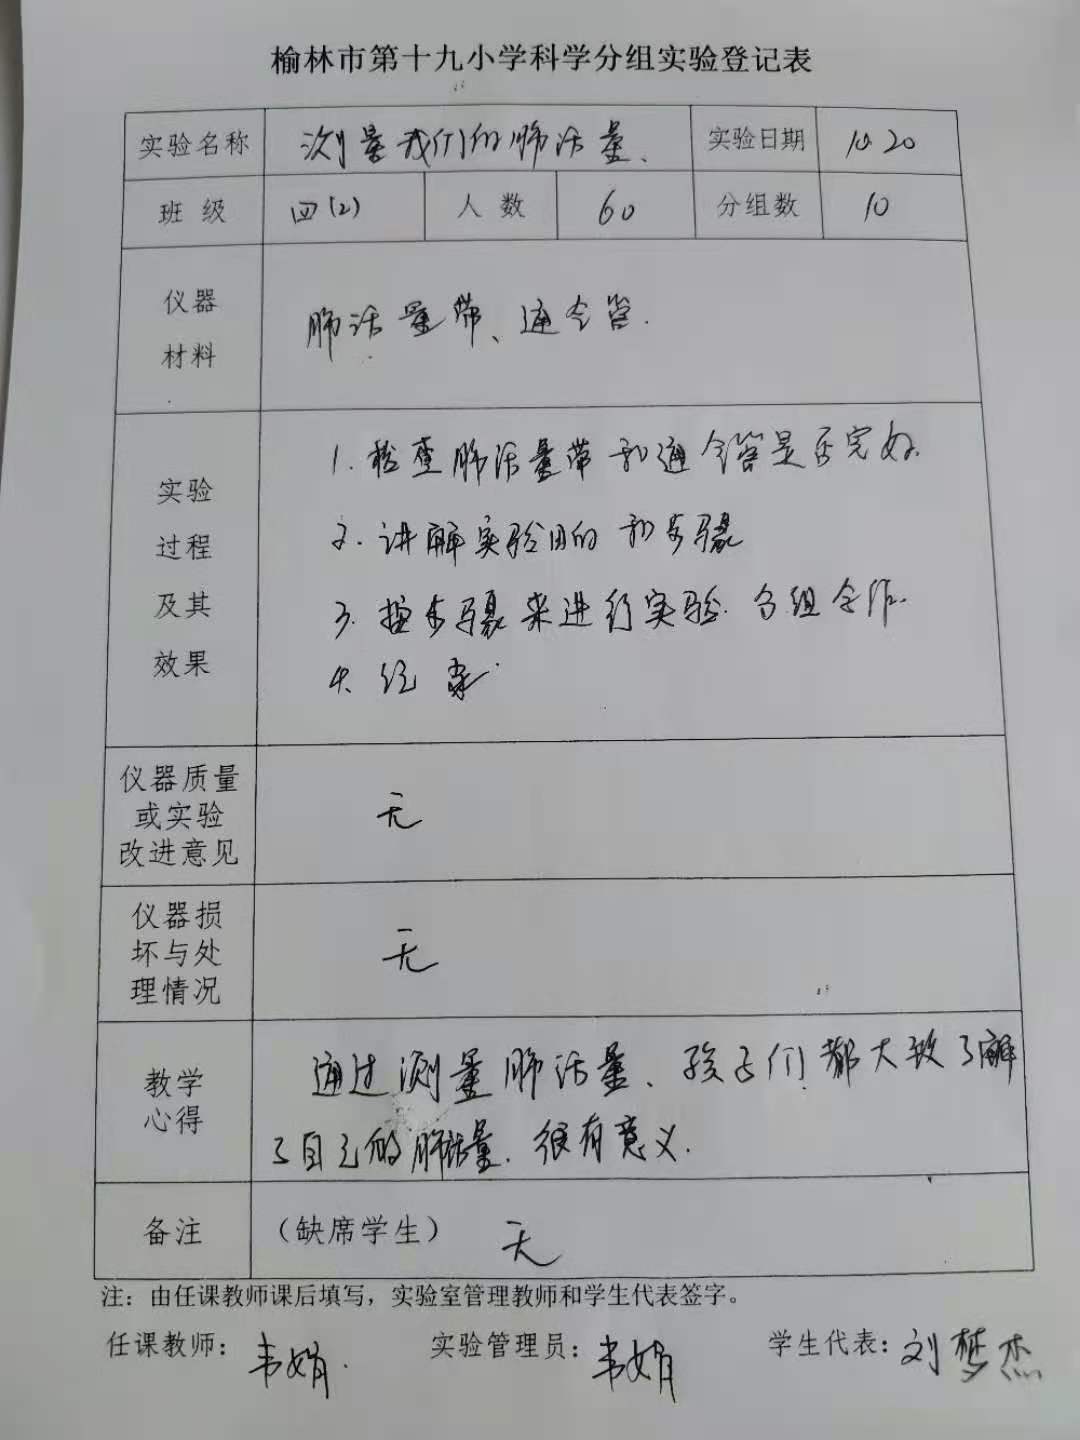 榆林市第十九小学科学分组实验登记表
实验名称 测量我们的肺活量、 实验日期 10.20
班 级 四(2) 人 数 60 分组数 10
仪器
材料
肺活量带、通令管.
实验
过程
及其
效果
1.检查肺活量带和通令管是否完好.
2.讲解实验目的和步骤
3.按步骤来进行实验.分组合作.
4.结束.
仪器质量
或实验
改进意见
无
仪器损
坏与处
理情况
无
教学
心得
通过测量肺活量、孩子们都大致了解
了自己的肺活量.很有意义.
备注 （缺席学生） 无
注：由任课教师课后填写，实验室管理教师和学生代表签字。
任课教师：韦娟. 实验管理员：韦娟 学生代表：刘梦杰